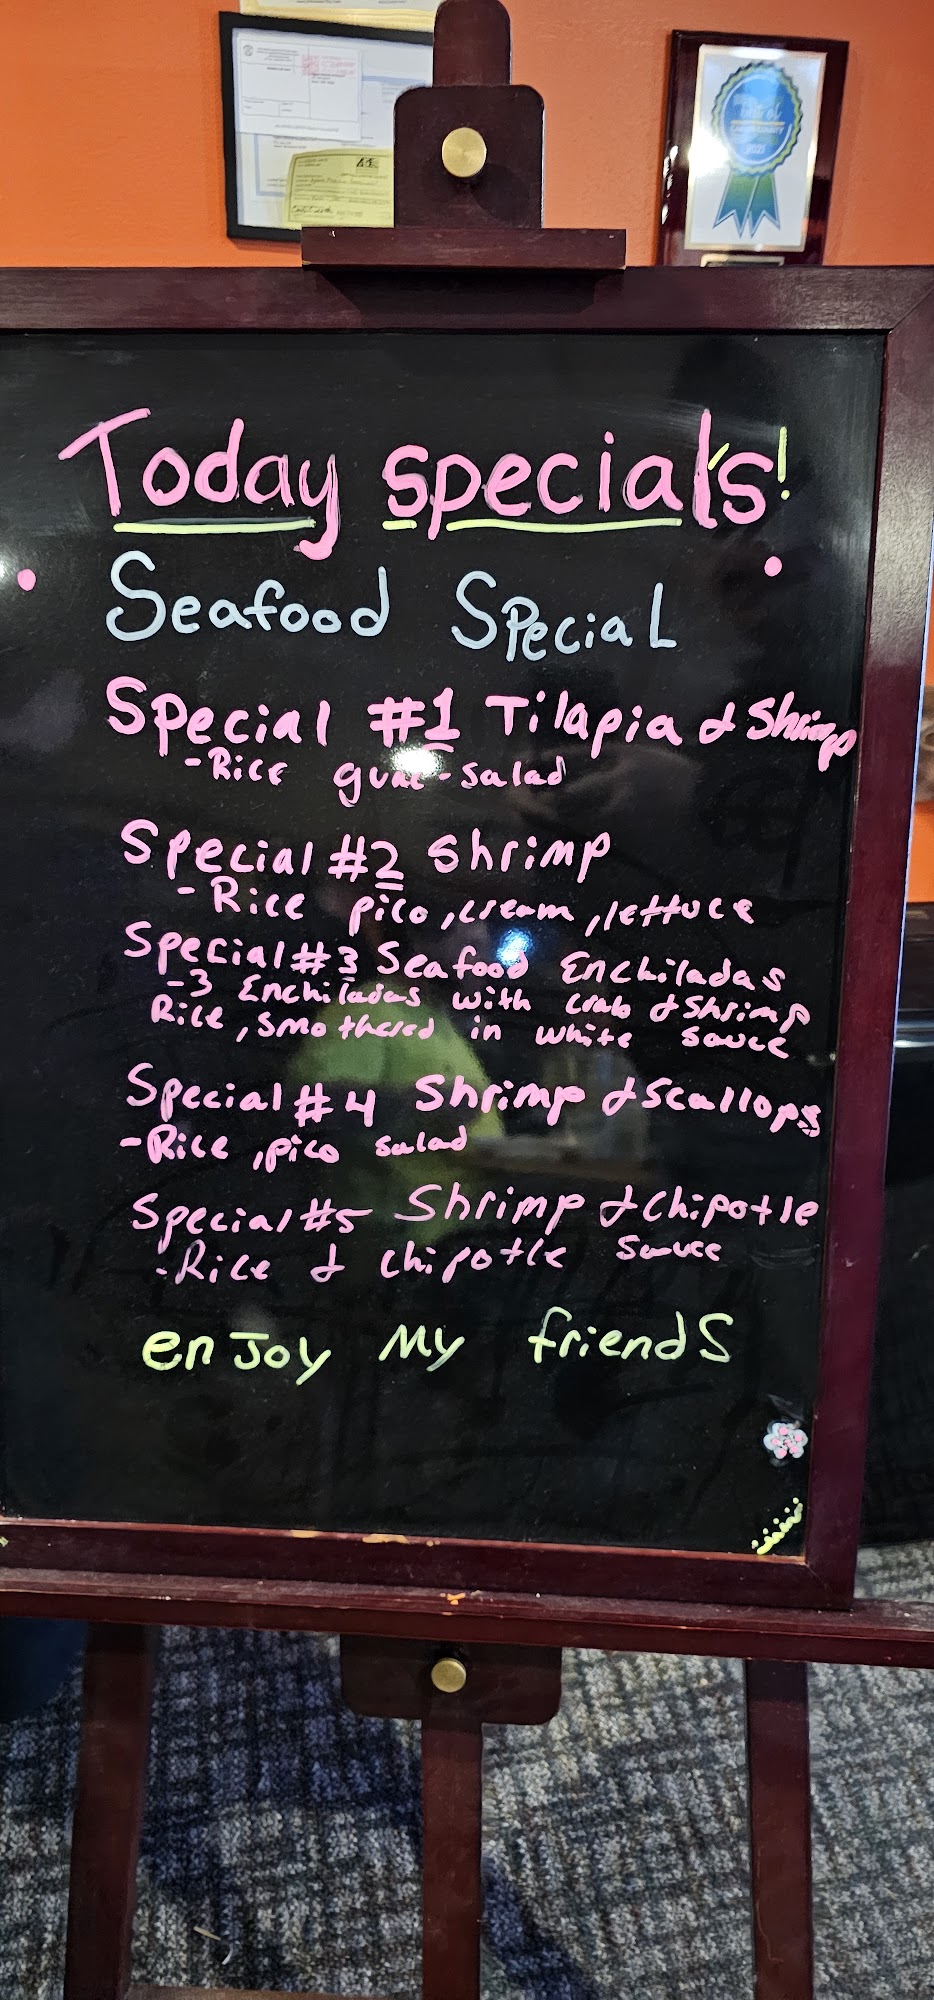 BEST OF
2021
Today special's!
Seafood Special
Special #1 Tilapia & Shrimp
-Rice guac-salad
Special #2 Shrimp
-Rice pico, cream, lettuce
Special #3 Seafood Enchiladas
-3 Enchiladas with crab & Shrimp
Rice, smothered in white sauce
Special #4 Shrimp & Scallops
-Rice, pico salad
Special #5 Shrimp & Chipotle
-Rice & chipotle sauce
enJoy My friendS